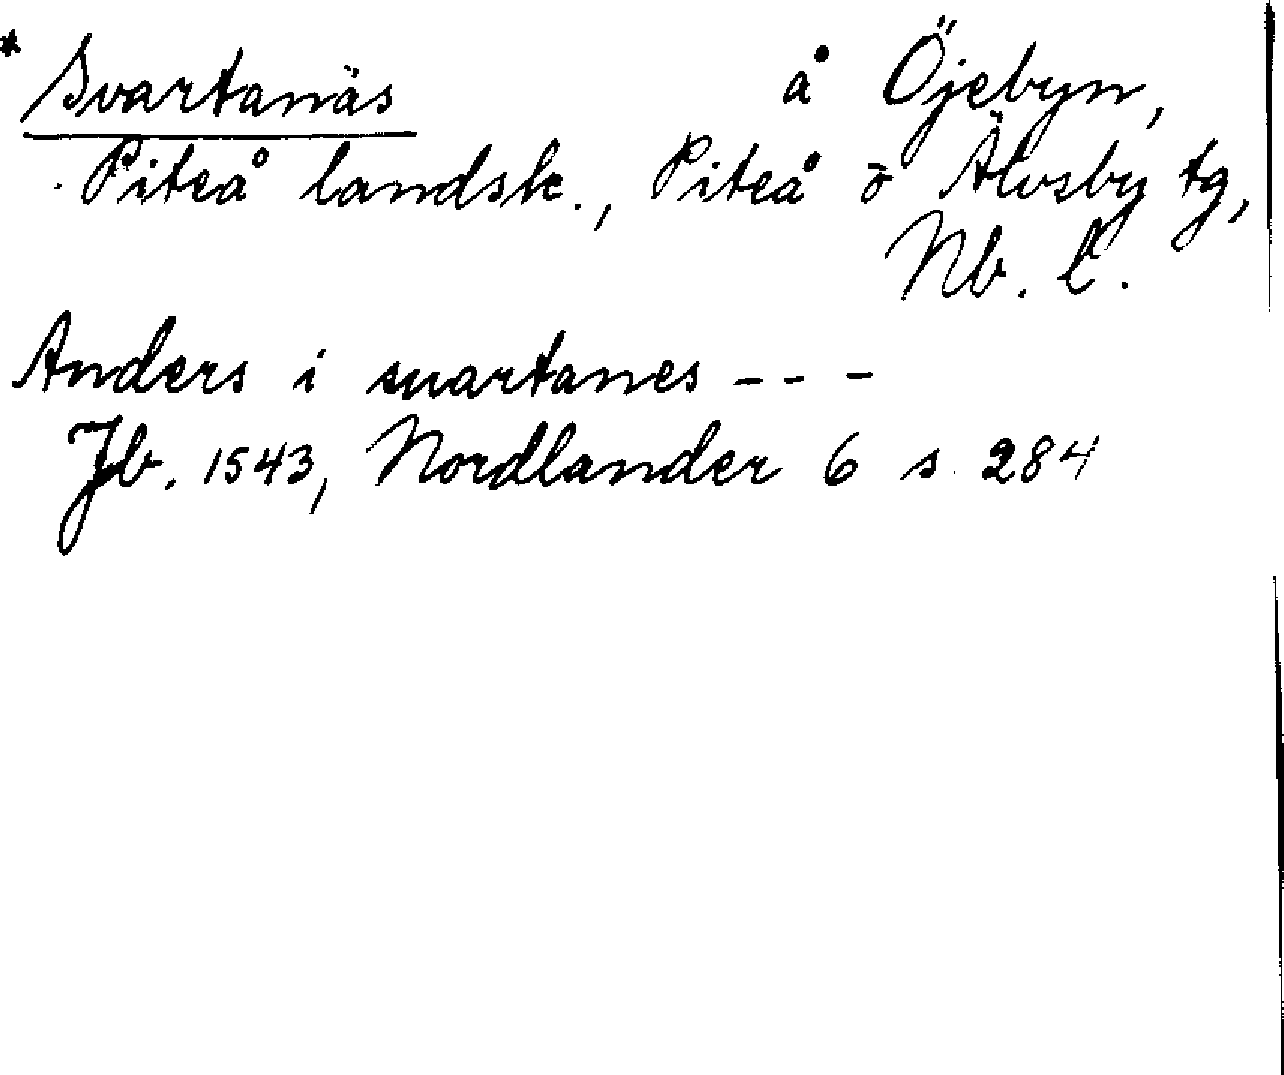 * Svartanäs å Öjebyn,
Piteå landsk., Piteå o Älvsby tg,
Nb. l.
Anders i suartanes - - -
Jb. 1543, Nordlander 6 s. 284